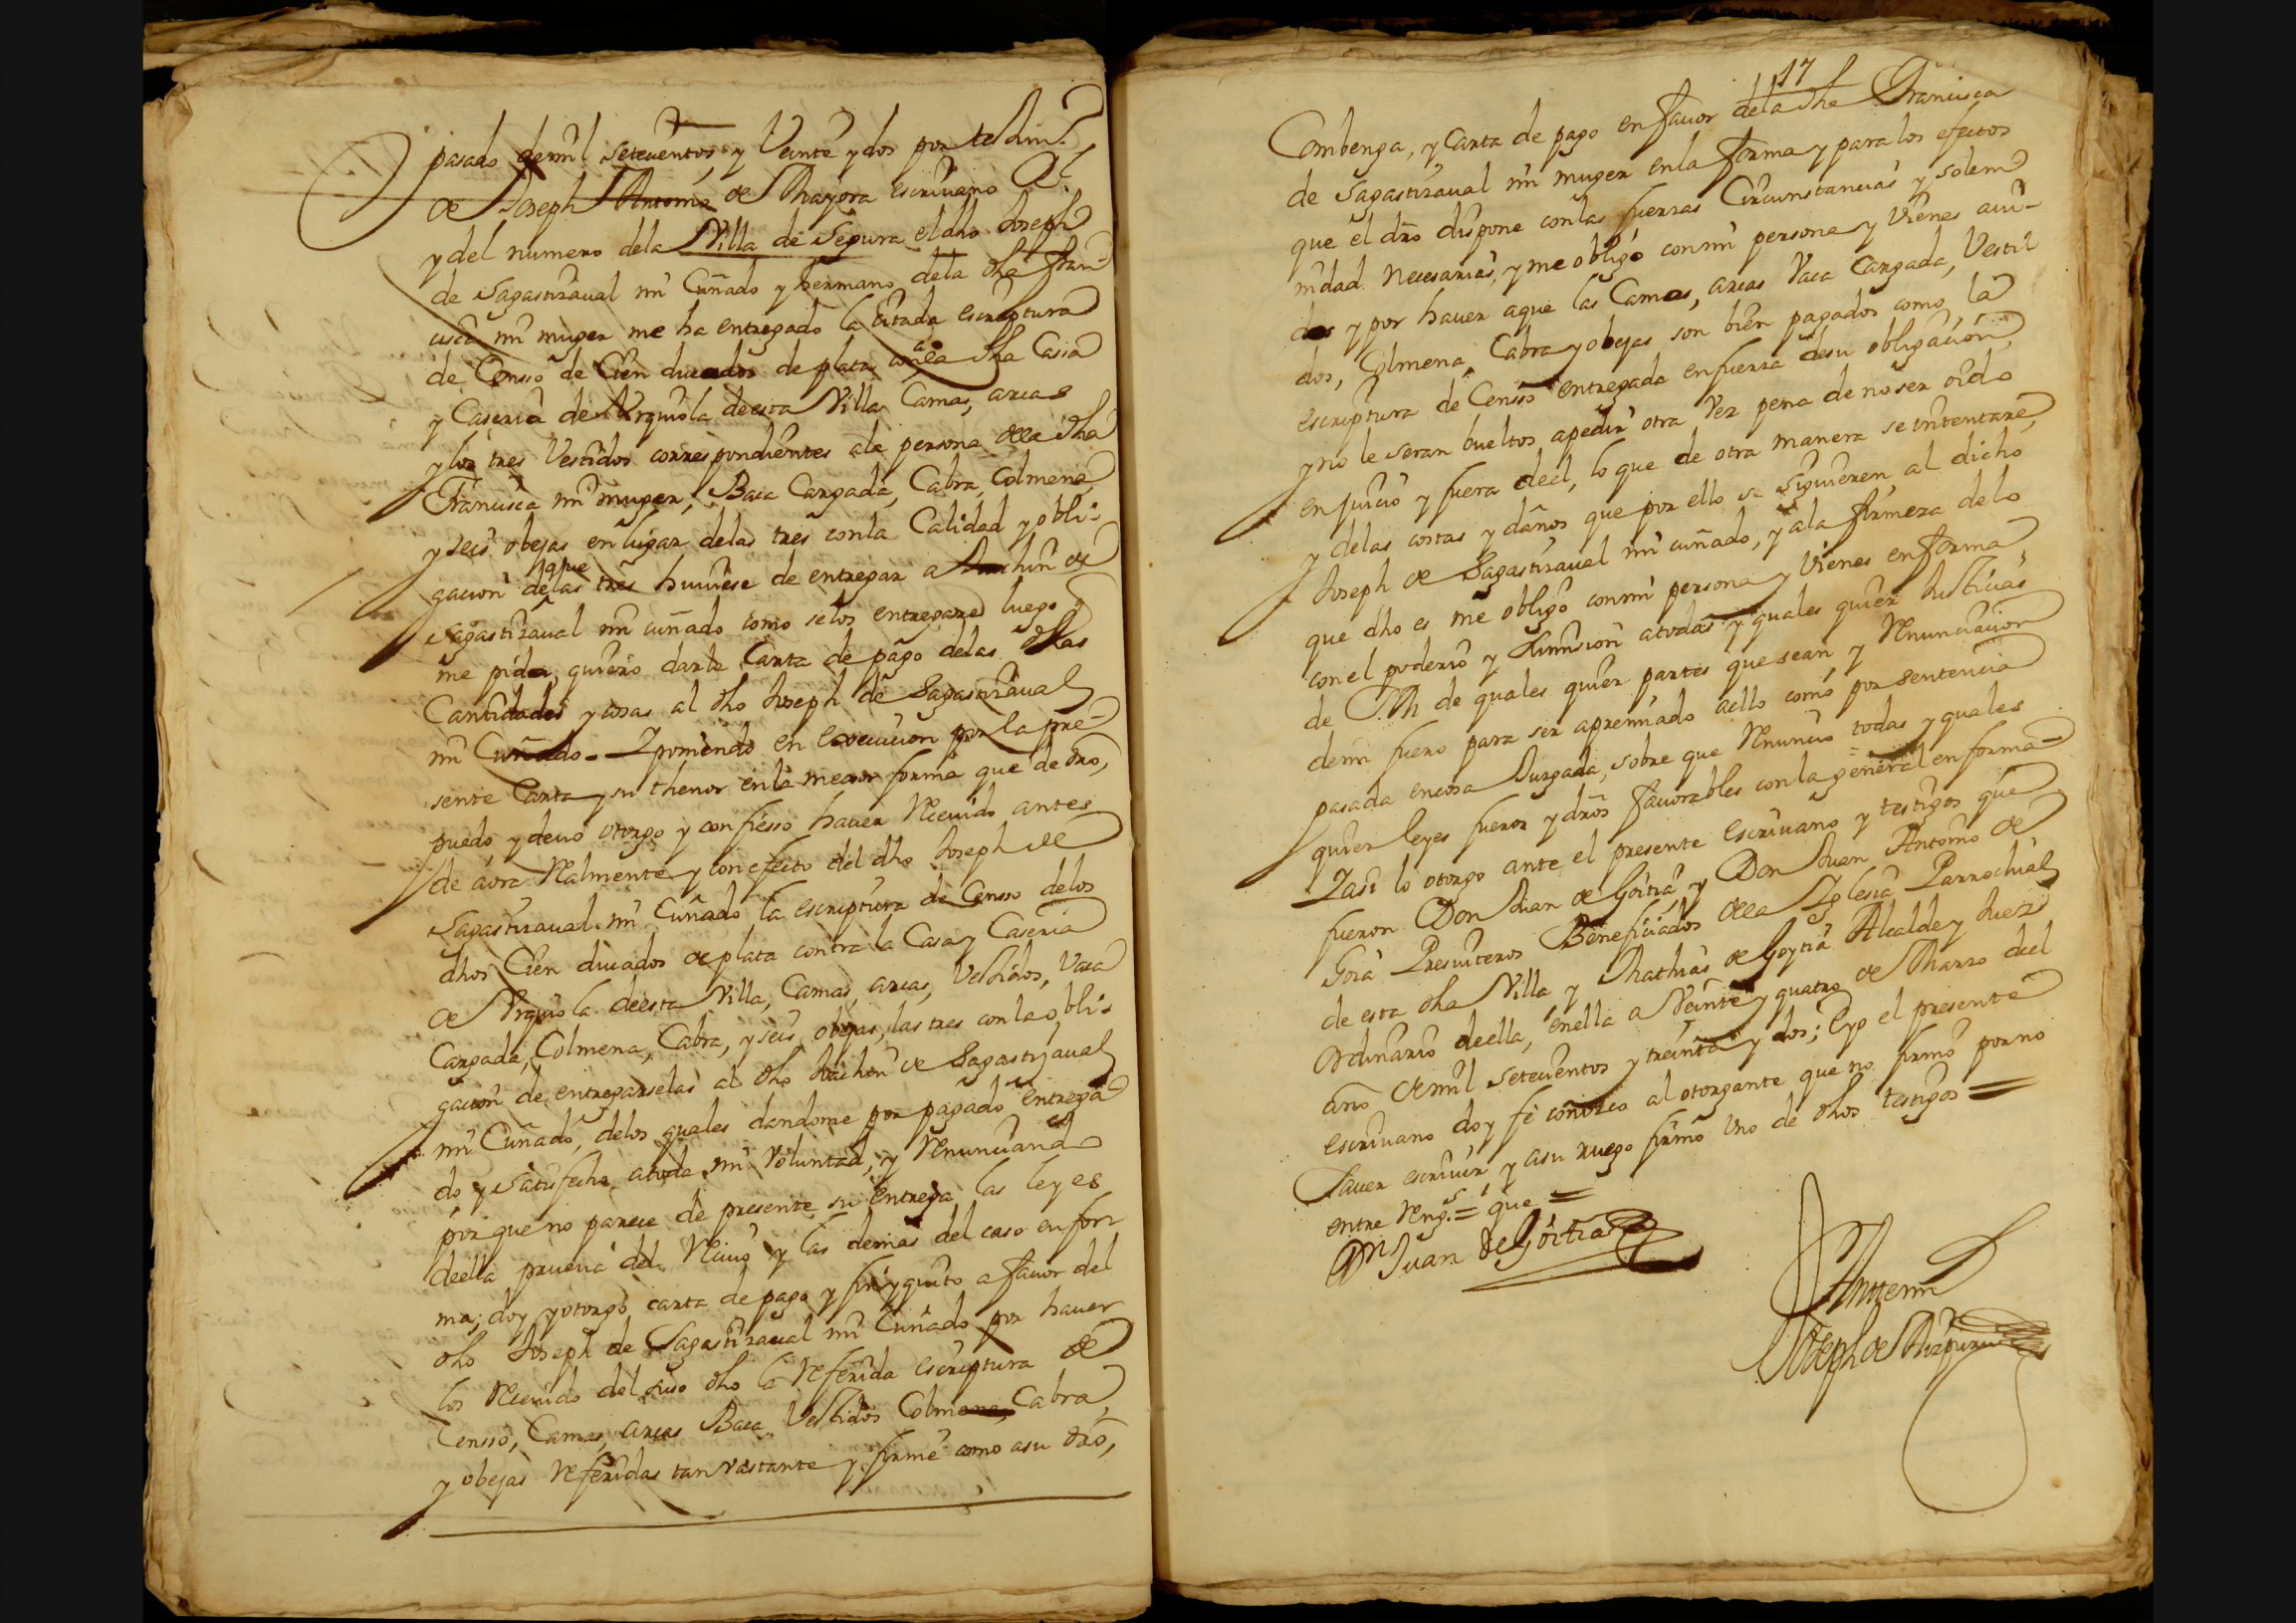 pasado de mil setecientos y Veinte y dos por testim.º
de Joseph Antonio de Mayora escriuano R.l
y del numero dela Villa de Segura el dho Joseph
de Sagastizaual mi Cuñado y hermano dela dha Fran-
cisca mi muger me ha entregado la citada escriptura
de Censso de Cien ducados de plata contra la dha Casa
y Caseria de Vrquiola deesta Villa Camas, arcas
y los tres Vestidos correspondientes ala persona dela dha
Francisca mi muger, Baca Cargada, Cabra, Colmena,
y seis obejas en lugar delas tres conla Calidad y obli-
gacion que delas tres huuiese de entregar a Juachin de
Sagastizaual mi cuñado como selos entregare luego
me pida, quiero darle Carta de pago delas dhas
Cantidades y cosas al dho Joseph de Sagastizaual
mi Cuñado - Y poniendo en execucion por la pre-
sente Carta y su thenor enla mejor forma que de dro,
puedo y deuo otorgo y confiesso hauer Receuido antes
de aora Realmente y con efecto del dho Joseph de
Sagastizaual mi Cuñado la escriptura de Censso delos
dhos Cien ducados de plata contra la Casa y Caseria
de Vrquiola deesta Villa, Camas, arcas, Vestidos, Vaca
Cargada, Colmena, Cabra, y seis obejas, las tres con la obli-
gacion de entregarselas al dho Juachin de Sagastizaual
mi Cuñado, delos quales dandome por pagado entrega-
do y satisfecho atoda mi Voluntad, y Renunciando
por que no parece de presente su entrega las leyes
deella prueua del Reciuo y las demas del caso en for-
ma, doy y otorgo carta de pago y finyquito a fauor del
dho Joseph de Sagastizaual mi Cuñado por hauer
los Receuido del suso dho la Referida escriptura de
Censso, Camas, arcas Baca Vestidos Colmena, Cabra,
y obejas Referidas tan vastante y firme como asu dro,
17
Combenga, y Carta de pago en fauor dela dha Francisca
de Sagastizaual mi muger enla forma y para los efectos
que el dro dispone conlas fuerzas Circunstancias y solem-
nidad necesarias, y me obligo con mi persona y Vienes aui-
dos y por hauer aque las Camas, arcas Vaca Cargada, Vesti-
dos, Colmena, Cabra y obejas son bien pagados como la
escriptura de Censso entregada en fuerza desu obligacion,
y no le seran bueltos apedir otra Vez pena de no ser oido
en juicio y fuera deel, lo que de otra manera se intentare,
y delas costas y daños que por ello se siguieren al dicho
Joseph de Sagastizaual mi cuñado, y ala firmeza delo
que dho es me obligo con mi persona y Vienes en forma
con el poderio y sumision atodas y quales quier Justicias
de S.M de quales quier partes que sean y Renunciacion
demi fuero para ser apremiado aello como por sentencia
pasada encosa Juzgada, sobre que Renuncio todas y quales
quier leyes fueros y dros fauorables conla general en forma
Y asi lo otorgo ante el presente escriuano y testigos que
fueron Don Juan de Goitia y Don Juan Antonio de
Goia Presuiteros Beneficiados dela Yglesia Parrochial
de esta dha Villa y Mathias de Goytia Alcalde y Juez
ordinario deella, enella a Veinte y quatro de Marzo del
año de mil setecientos y treinta y dos; e yo el presente
escriuano doy fe conozco al otorgante que no firmo por no
sauer escriuir y asu ruego firmo Vno de dhos testigos =
entre Reng.s = que =
Dn Juan de Goitia
Antemi
Joseph de